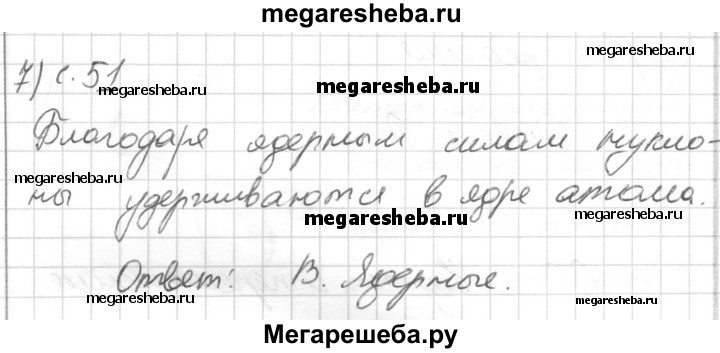 megaresheba.ru
7) с. 51
megaresheba.ru
megaresheba.ru
megaresheba.ru
Благодаря ядерным силам нукло-
megaresheba.ru
ны удерживаются в ядре атома.
megaresheba.ru
megaresheba.ru
Ответ: В. Ядерные.
megaresheba.ru
megaresheba.ru
Мегарешеба.ру